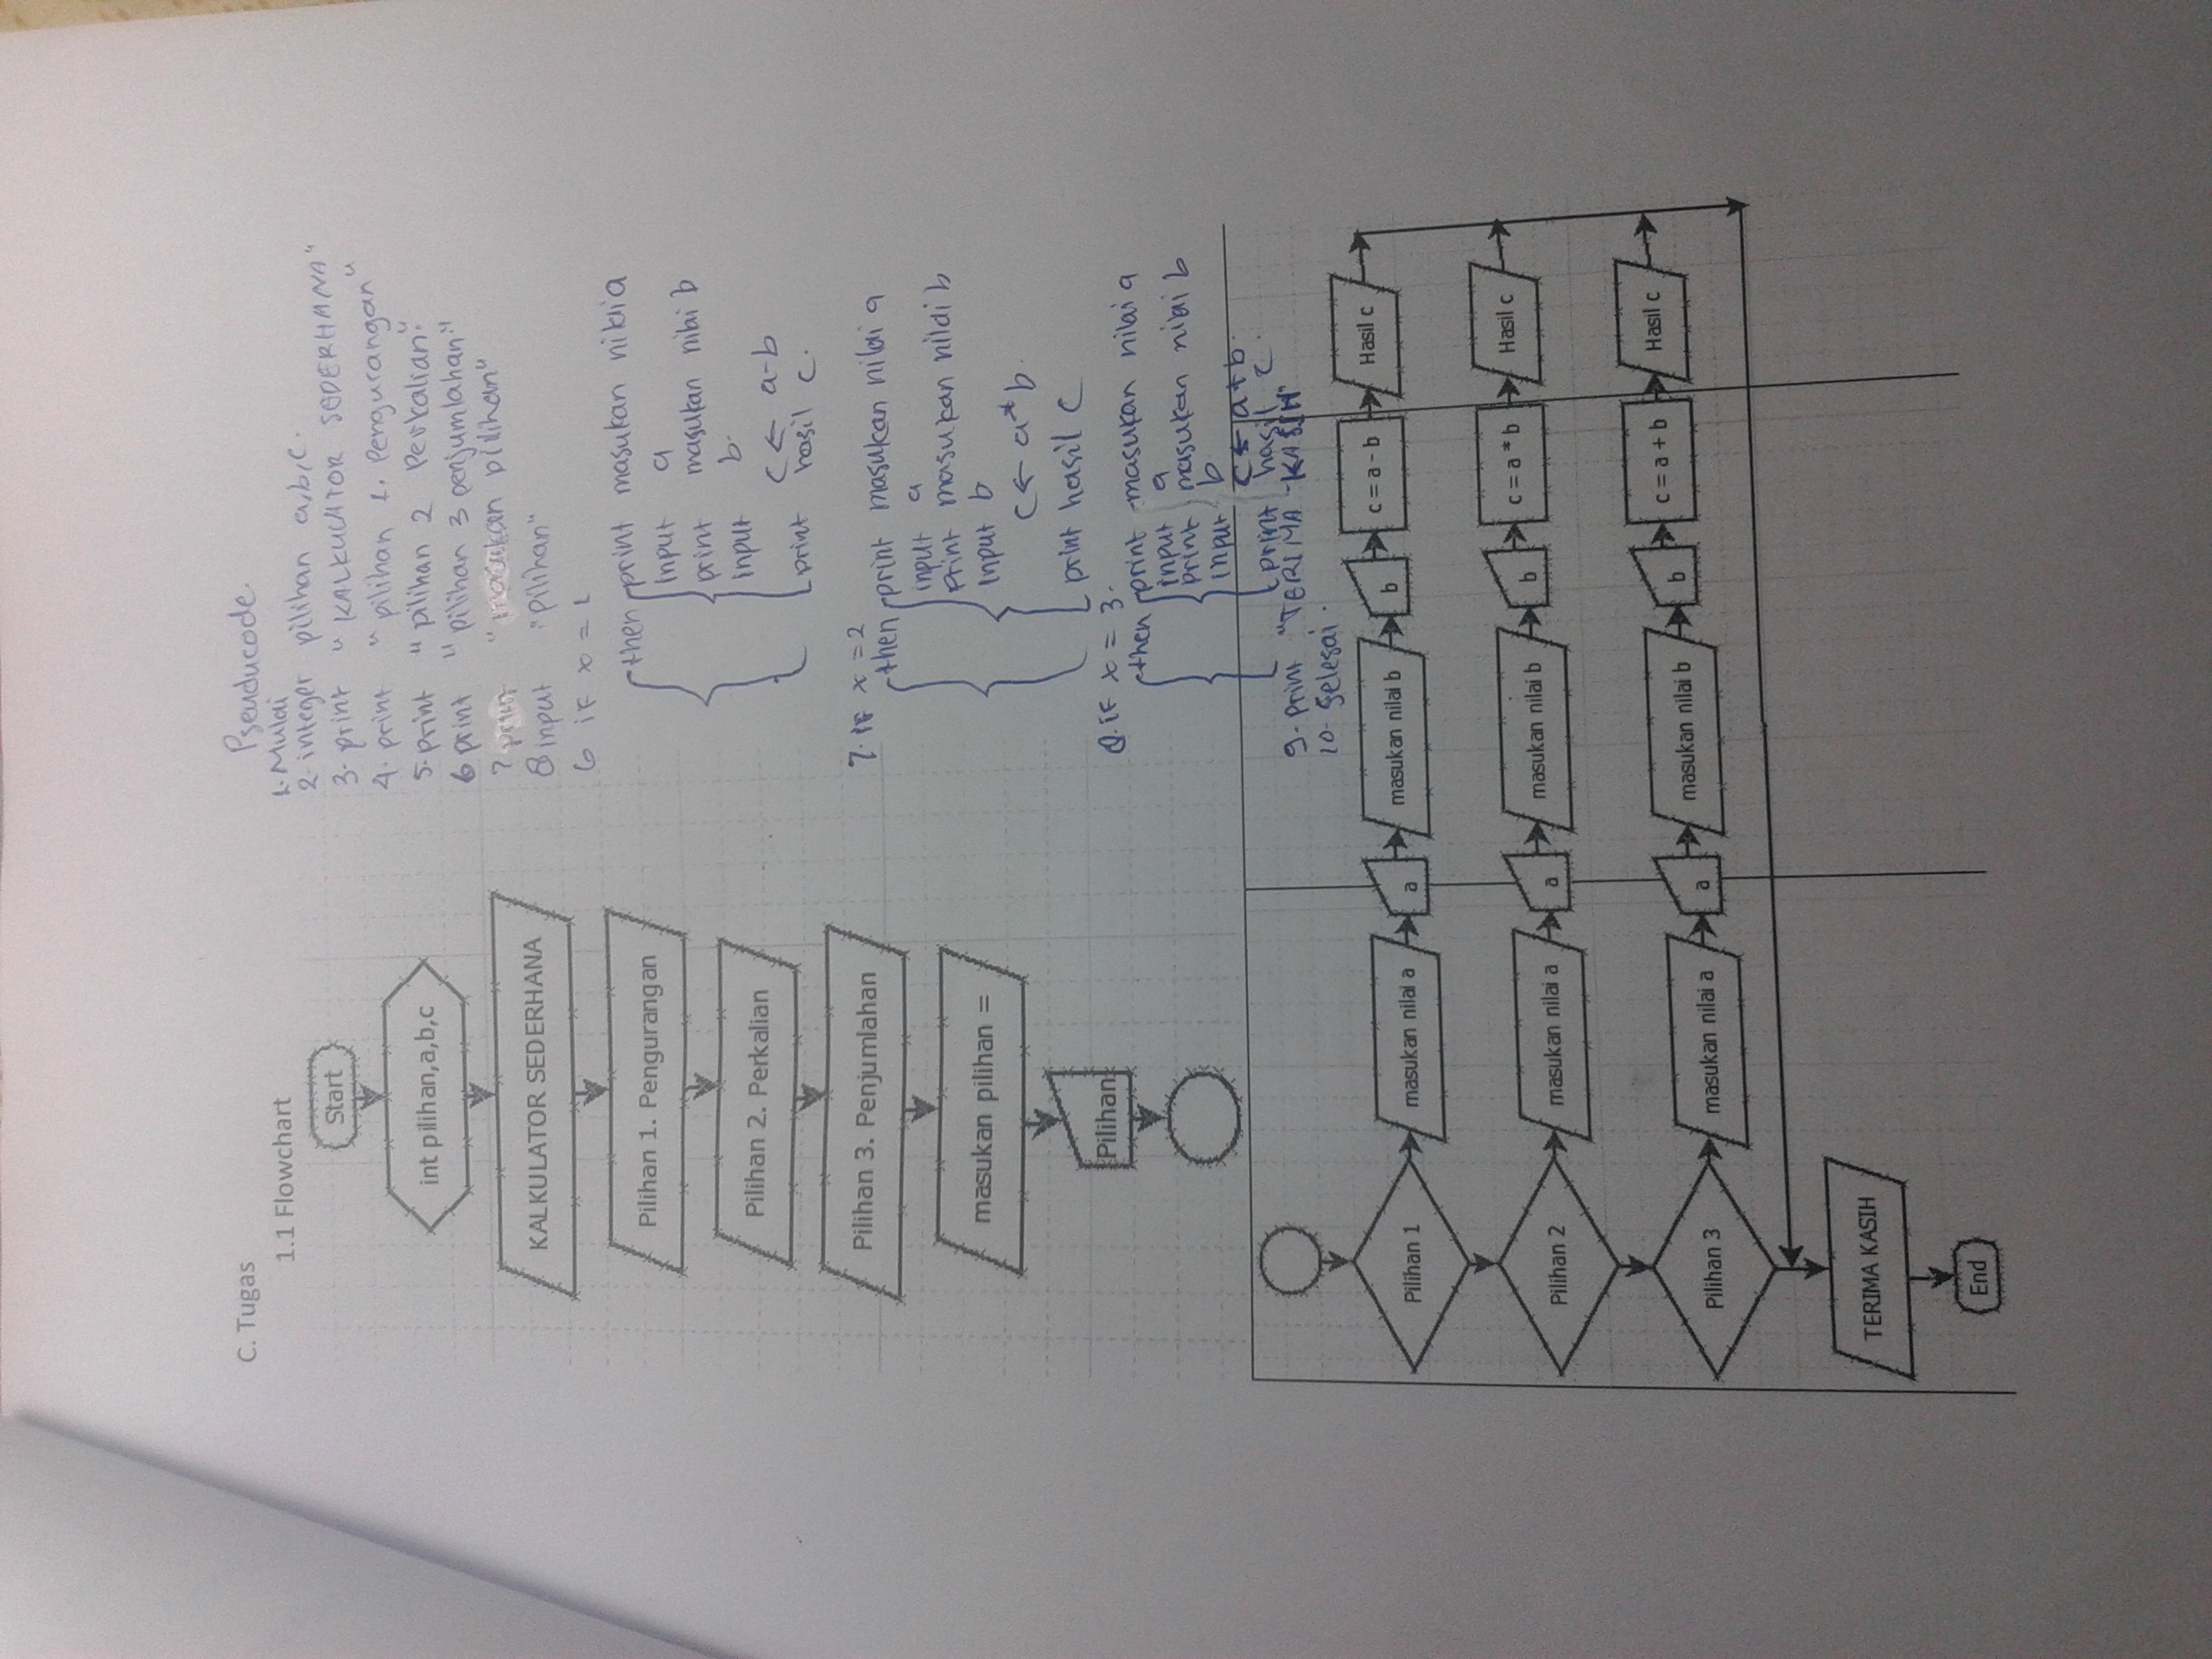 C. Tugas
1.1 Flowchart
Start
int pilihan,a,b,c
KALKULATOR SEDERHANA
Pilihan 1. Pengurangan
Pilihan 2. Perkalian
Pilihan 3. Penjumlahan
masukan pilihan =
Pilihan
Pseuducode.
1. Mulai
2- integer pilihan a,b,c.
3- print "KALKULATOR SEDERHANA"
4. print "pilihan 1. Pengurangan"
5. print "pilihan 2 Perkalian."
6 print "pilihan 3 penjumlahan."
7 print "masukan pilihan"
8 input "pilihan"
6 if x = 1
then print masukan nilai a
input a
print masukan nilai b
input b.
c ← a-b
print hasil c.
7. if x = 2
then print masukan nilai a
input a
print masukan nilai b
input b
c ← a*b.
print hasil c
8. if x = 3.
then print masukan nilai a
input a
print masukan nilai b
input b
c ← a+b.
print hasil c.
9. print "TERIMA KASIH"
10. Selesai.
Pilihan 1 masukan nilai a a masukan nilai b b c = a - b Hasil c
Pilihan 2 masukan nilai a a masukan nilai b b c = a * b Hasil c
Pilihan 3 masukan nilai a a masukan nilai b b c = a + b Hasil c
TERIMA KASIH
End